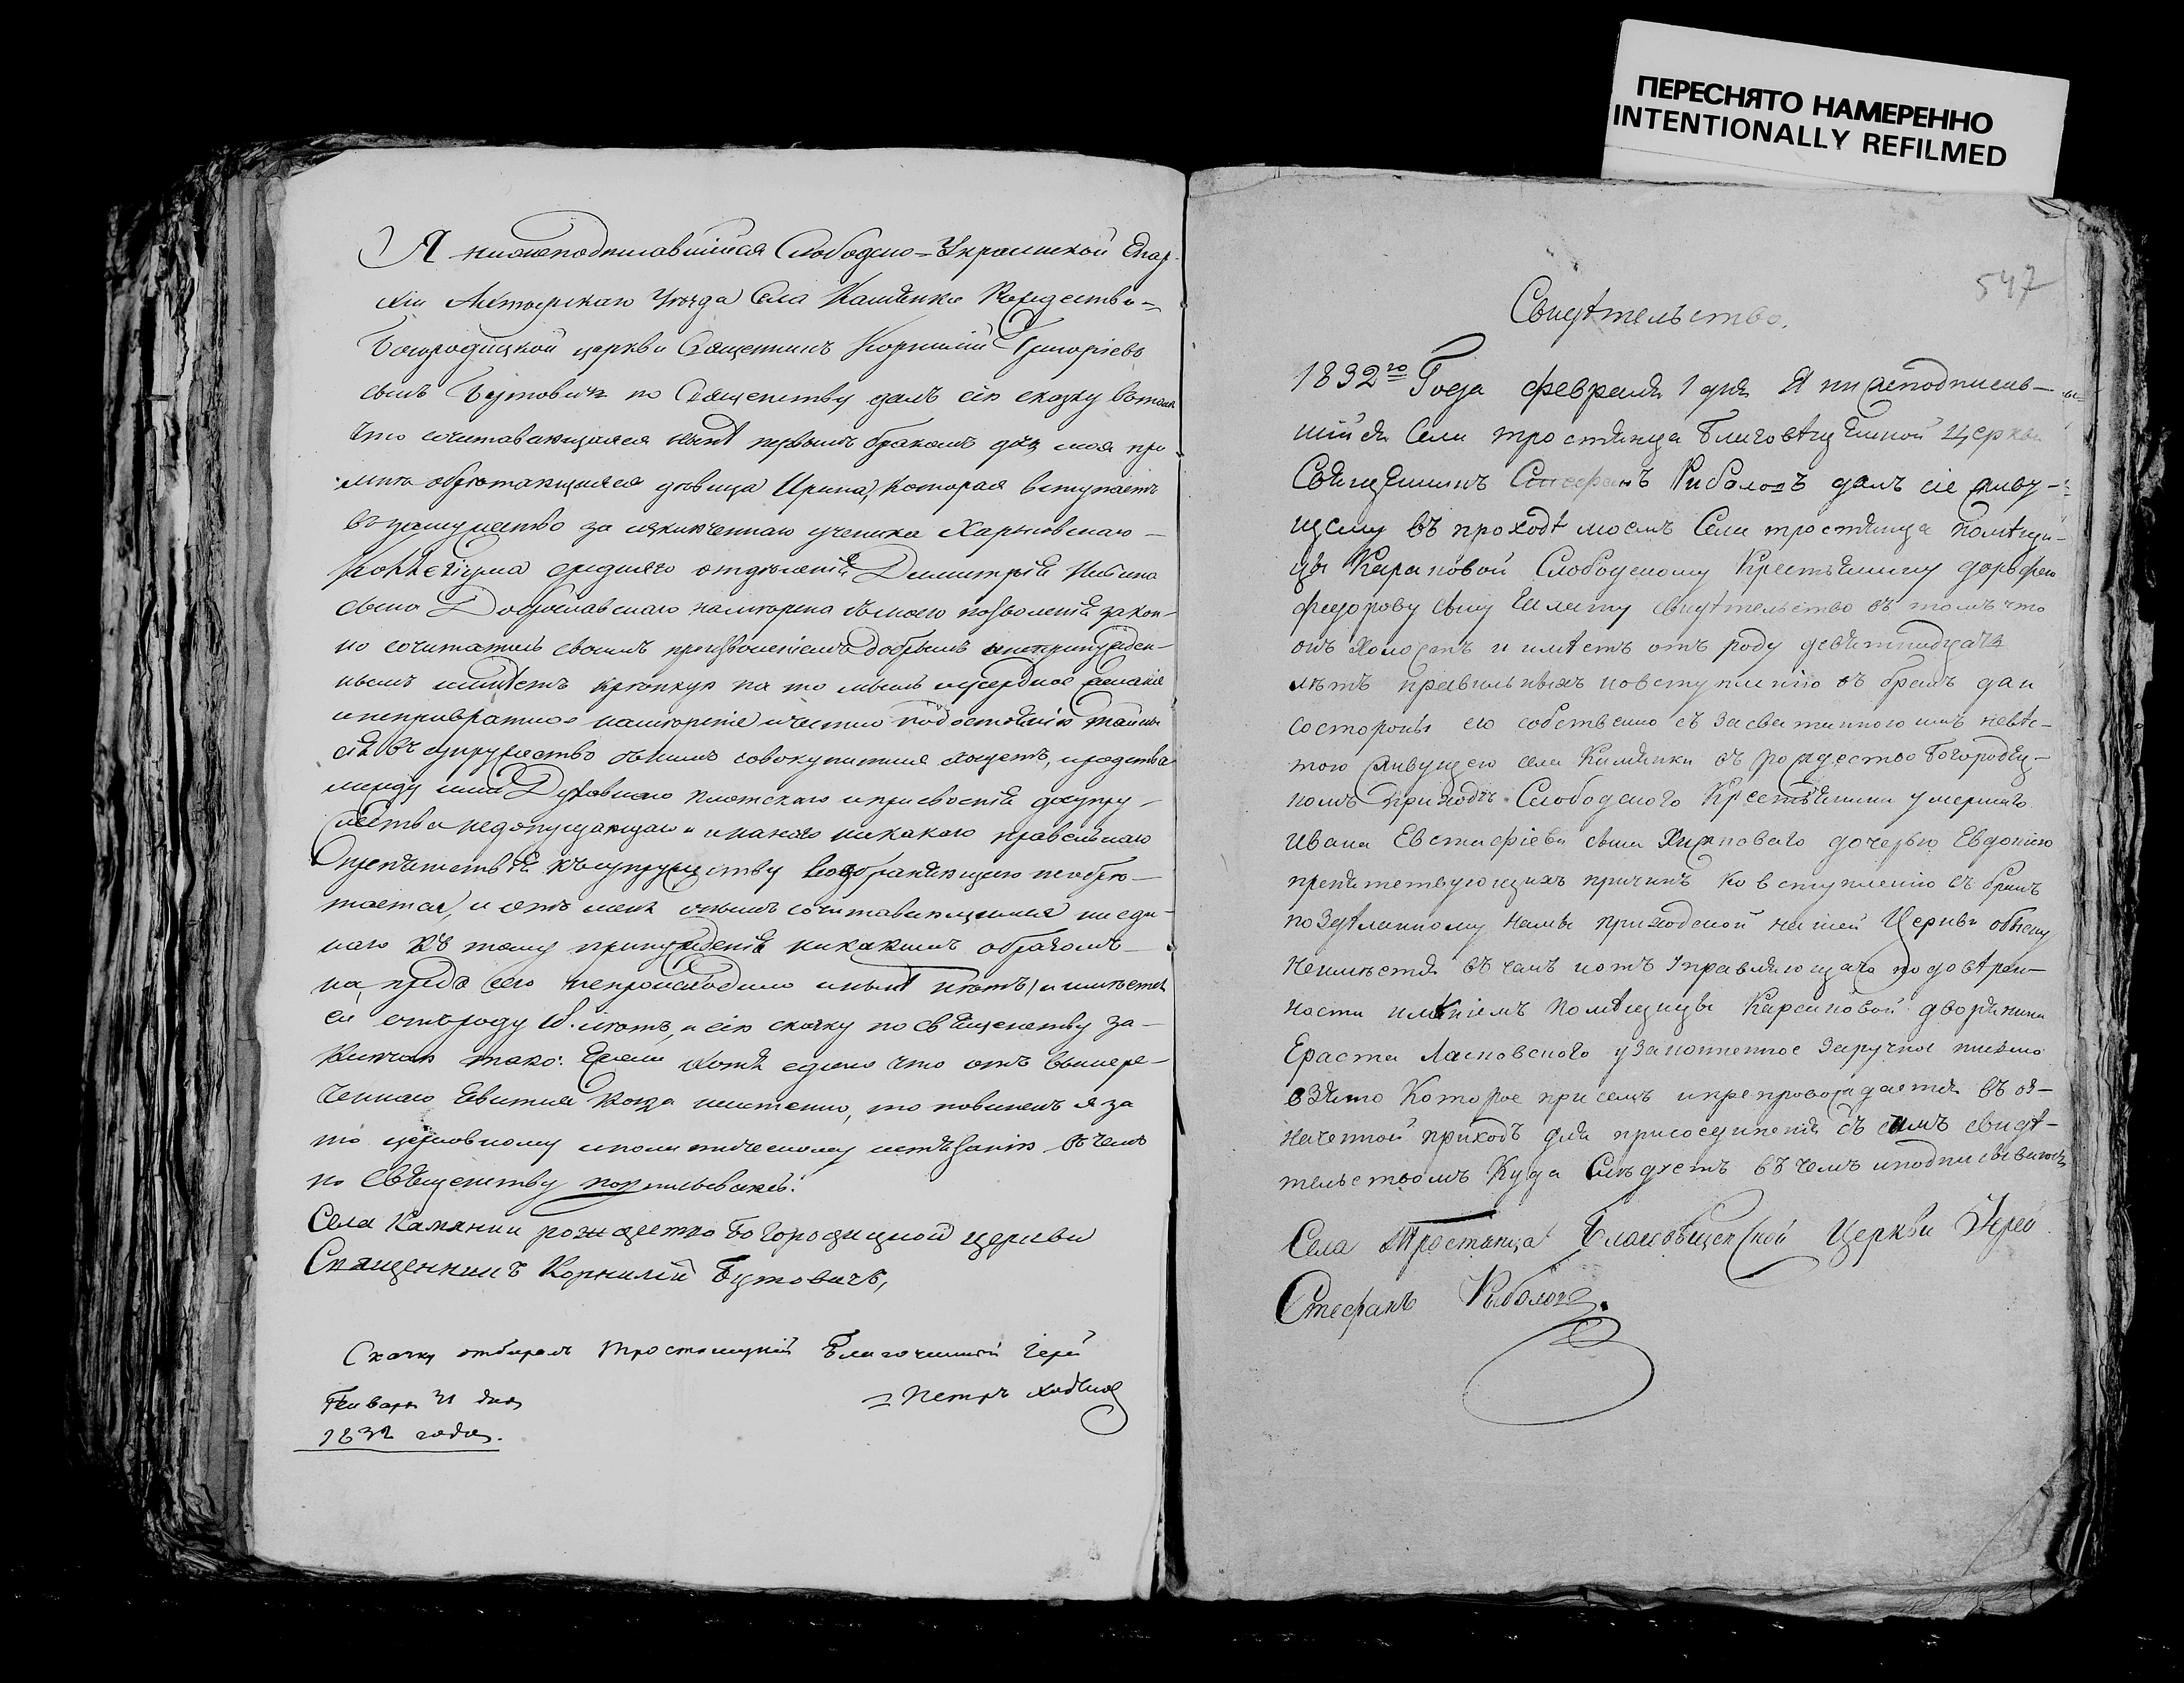 ПЕРЕСНЯТО НАМЕРЕННО
INTENTIONALLY REFILMED
Я нижеподписавшійся Слободско=Украинской Епар-
хіи Ахтырскаго уѣзда Села Камянки Рождество-
Богородицкой церкви Священникъ Корнилій Григорьевъ
сынъ Бутовичъ по Священству далъ сію сказку въ томъ
что сочитавающаяся нынѣ первымъ бракомъ дочь моя при
мнѣ обрѣтающаяся дѣвица Ирина, которая вступаетъ
въ замужество за ученика Харьковскаго
Коллегіума средняго отдѣленія Димитрія
сына Доброславскаго намѣрена съ моего позволенія закон-
но сочитатись своимъ произволеніемъ добрымъ и непринужден-
нымъ и имѣетъ крѣпкую на то мысль усердное желаніе
и непревратное намѣреніе и
въ супружество съ нимъ совокупитися хощетъ, и родства
между ими Духовнаго плотскаго и присвоенія до супру-
жества недопущающаго и инаго никакого правильнаго
Препятствія къ супружеству возбраняющаго необрѣ-
тается, и отъ мене онымъ сочитавающимся ни еди-
наго къ тому принужденія никакимъ образомъ
на предъ сего непроисходило и нынѣ нѣтъ, и имѣется
ей отъ роду 18. лѣтъ, и сію сказку по священству за-
ключаю тако: Ежели хотя едино что отъ вышере-
ченнаго явится когда неистенно, то повиненъ я за
то церковному и политическому истязанію въ чемъ
по Священству подписываюсь.
Села Камянки рождество Богородицкой церкви
Священникъ Корнилій Бутовичъ,
Сказку отбиралъ Тростянецкій Благочинный Іерей
Петръ
Генваря 31 дня
1832 года.
547
Свидѣтельство.
1832го Года февраля 1 дня Я нижеподписав-
шійся Села тростянца Благовѣщенской Церкви
Священникъ Стефанъ Рибаловъ далъ сіе живу-
щему въ приходѣ моемъ Села тростянца помѣщи-
цы Карповой Слободскому Крестьянину дорофею
федорову сыну свидѣтельство въ томъ что
онъ Холостъ и имѣетъ отъ роду девятнадцать
лѣтъ правильныхъ ко вступленію въ бракъ да и
со стороны его собственно съ засватанною имъ невѣс-
тою живущею села Камянки въ рождество Богородиц-
комъ приходѣ Слободского Крестьянина умершаго
Ивана Евстафіева сына дочерью Евдокіею
препятствующихъ причинъ ко вступленію въ бракъ
по здѣланному нами приходской нашей Церкви обыску
неимѣется въ чемъ и отъ Управляющаго по довѣрен-
ности имѣніемъ помѣщицы Карповой дворянина
Ераста Ласковского узаконенное заручное письмо
взято Которое при семъ и препровождается въ оз-
наченной приходъ для присоединенія съ симъ свидѣ-
тельствомъ Куда Слѣдуетъ въ чемъ и подписываюсь
Села Тростянца Благовѣщенской Церкви Іерей
Стефанъ Рыбаловъ.